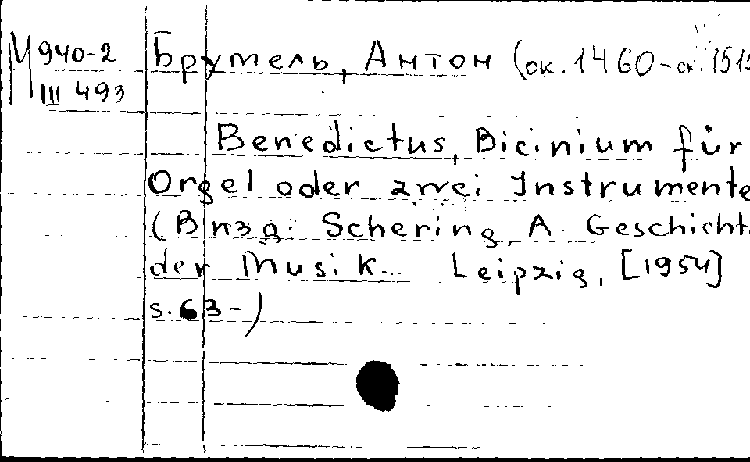 М 940-2
III 493
Брумель, Антон (ок. 1460-ок. 1515
Benedictus, Bicinium für
Orgel oder zwei Instrumente
(В изд: Schering, A. Geschicht
der Musik... Leipzig, [1954]
s. 63-)